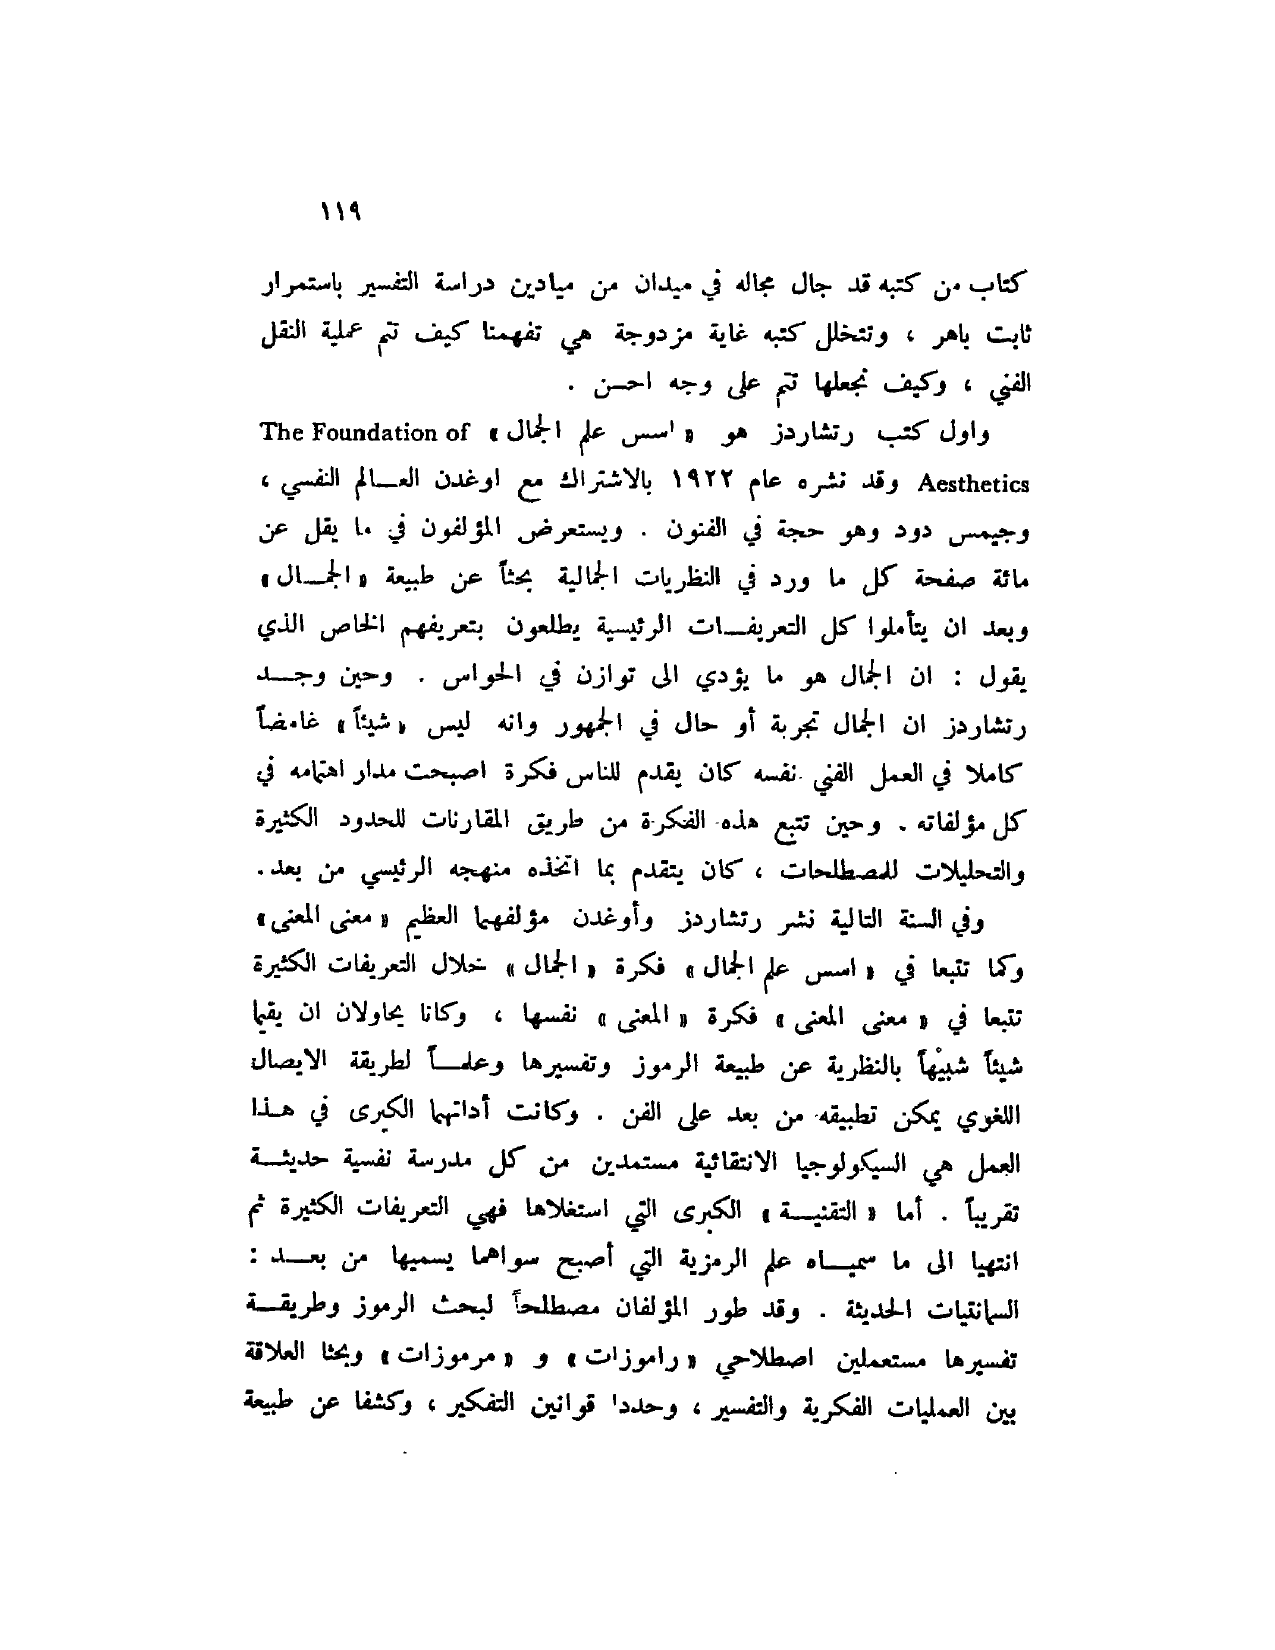 ١١٩
كتاب من كتبه قد جال مجاله في ميدان من ميادين دراسة التفسير باستمرار
ثابت باهر ، وتتخلل كتبه غاية مزدوجة هي تفهمنا كيف تتم عملية النقل
الفني ، وكيف نجعلها تتم على وجه احسن .
واول كتب رتشاردز هو « اسس علم الجمال » The Foundation of
Aesthetics وقد نشره عام ١٩٢٢ بالاشتراك مع اوغدن العـالم النفسي ،
وجيمس دود وهو حجة في الفنون . ويستعرض المؤلفون في ما يقل عن
مائة صفحة كل ما ورد في النظريات الجمالية بحثاً عن طبيعة «الجـمال»
وبعد ان يتأملوا كل التعريفـات الرئيسية يطلعون بتعريفهم الخاص الذي
يقول : ان الجمال هو ما يؤدي الى توازن في الحواس . وحين وجـد
رتشاردز ان الجمال تجربة أو حال في الجمهور وانه ليس «شيئاً» غامضاً
كاملا في العمل الفني نفسه كان يقدم للناس فكرة اصبحت مدار اهتمامه في
كل مؤلفاته . وحين تتبع هذه الفكرة من طريق المقارنات للحدود الكثيرة
والتحليلات للمصطلحات ، كان يتقدم بما اتخذه منهجه الرئيسي من بعد .
وفي السنة التالية نشر رتشاردز وأوغدن مؤلفهما العظيم « معنى المعنى »
وكما تتبعا في « اسس علم الجمال » فكرة « الجمال » خلال التعريفات الكثيرة
تتبعا في « معنى المعنى » فكرة « المعنى » نفسها ، وكانا يحاولان ان يقيما
شيئاً شبيهاً بالنظرية عن طبيعة الرموز وتفسيرها وعلمـاً لطريقة الايصال
اللغوي يمكن تطبيقه من بعد على الفن . وكانت أداتهما الكبرى في هـذا
العمل هي السيكولوجيا الانتقائية مستمدين من كل مدرسة نفسية حديثـة
تقريباً . أما « التقنيـة » الكبرى التي استغلاها فهي التعريفات الكثيرة ثم
انتهيا الى ما سميـاه علم الرمزية التي أصبح سواهما يسميها من بعـد :
السيمانتيات الحديثة . وقد طور المؤلفان مصطلحاً لبحث الرموز وطريقـة
تفسيرها مستعملين اصطلاحي « راموزات » و « مرموزات » وبحثا العلاقة
بين العمليات الفكرية والتفسير ، وحددا قوانين التفكير ، وكشفا عن طبيعة